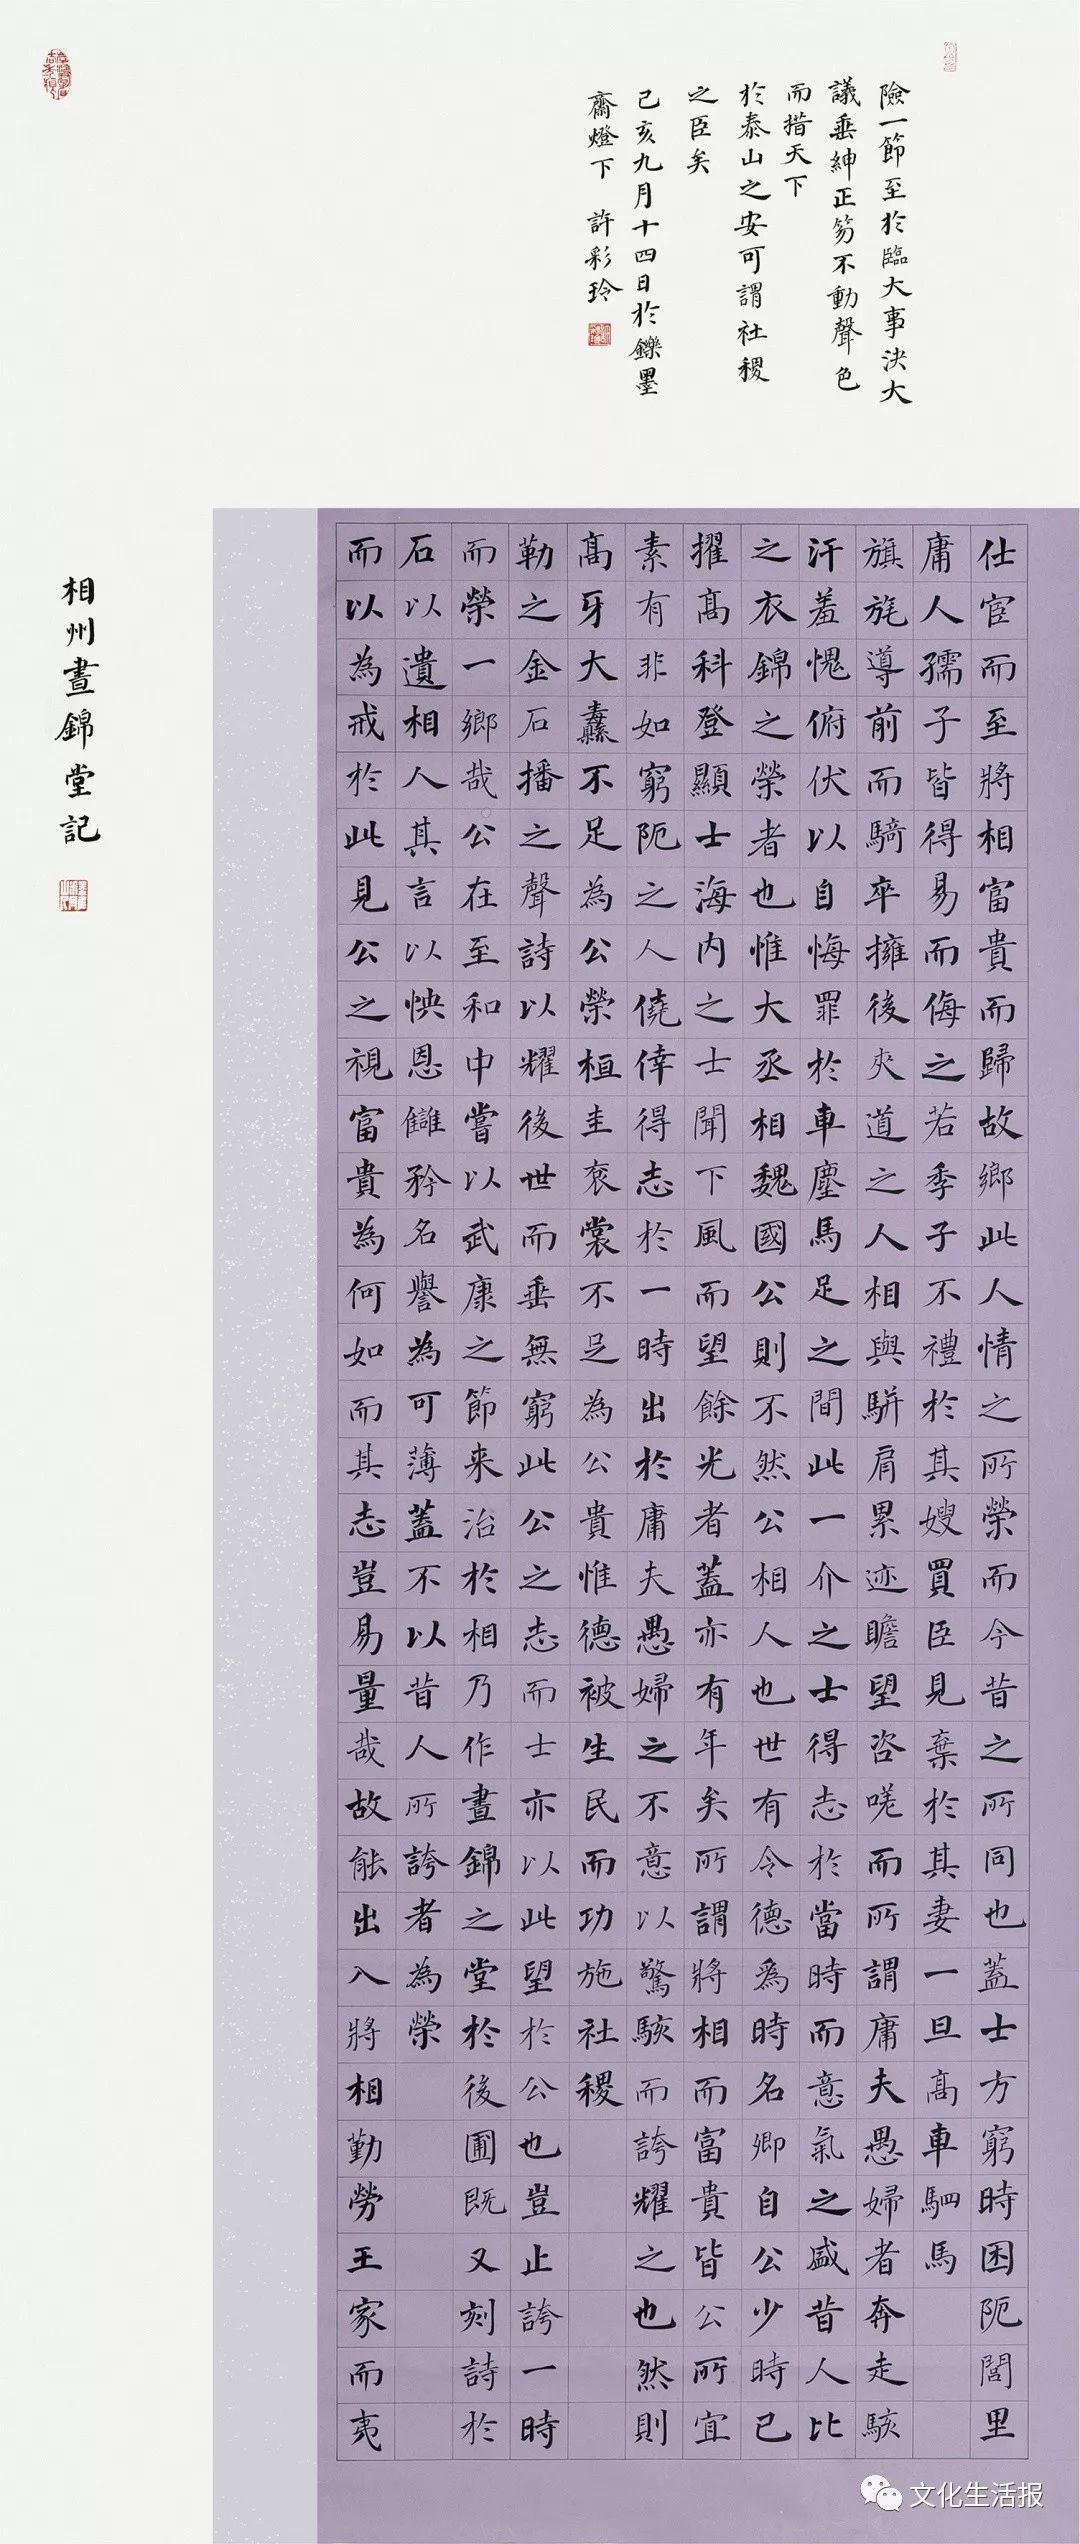 相州晝錦堂記
仕宦而至將相富貴而歸故鄉此人情之所榮而今昔之所同也蓋士方窮時困阨閭里
庸人孺子皆得易而侮之若季子不禮於其嫂買臣見棄於其妻一旦高車駟馬
旗旄導前而騎卒擁後夾道之人相與駢肩累迹瞻望咨嗟而所謂庸夫愚婦者奔走駭
汗羞愧俯伏以自悔罪於車塵馬足之間此一介之士得志於當時而意氣之盛昔人比
之衣錦之榮者也惟大丞相魏國公則不然公相人也世有令德爲時名卿自公少時已
擢高科登顯士海内之士聞下風而望餘光者蓋亦有年矣所謂將相而富貴皆公所宜
素有非如窮阨之人僥倖得志於一時出於庸夫愚婦之不意以驚駭而誇耀之也然則
高牙大纛不足為公榮桓圭衮裳不足為公貴惟德被生民而功施社稷
勒之金石播之聲詩以耀後世而垂無窮此公之志而士亦以此望於公也豈止誇一時
而榮一鄉哉公在至和中嘗以武康之節来治於相乃作晝錦之堂於後圃既又刻詩於
石以遺相人其言以怏恩讎矜名譽為可薄蓋不以昔人所誇者為榮
而以為戒於此見公之視富貴為何如而其志豈易量哉故能出入將相勤勞王家而夷
險一節至於臨大事決大
議垂紳正笏不動聲色
而措天下
於泰山之安可謂社稷
之臣矣
己亥九月十四日於鑠墨
齋燈下 許彩玲
文化生活报